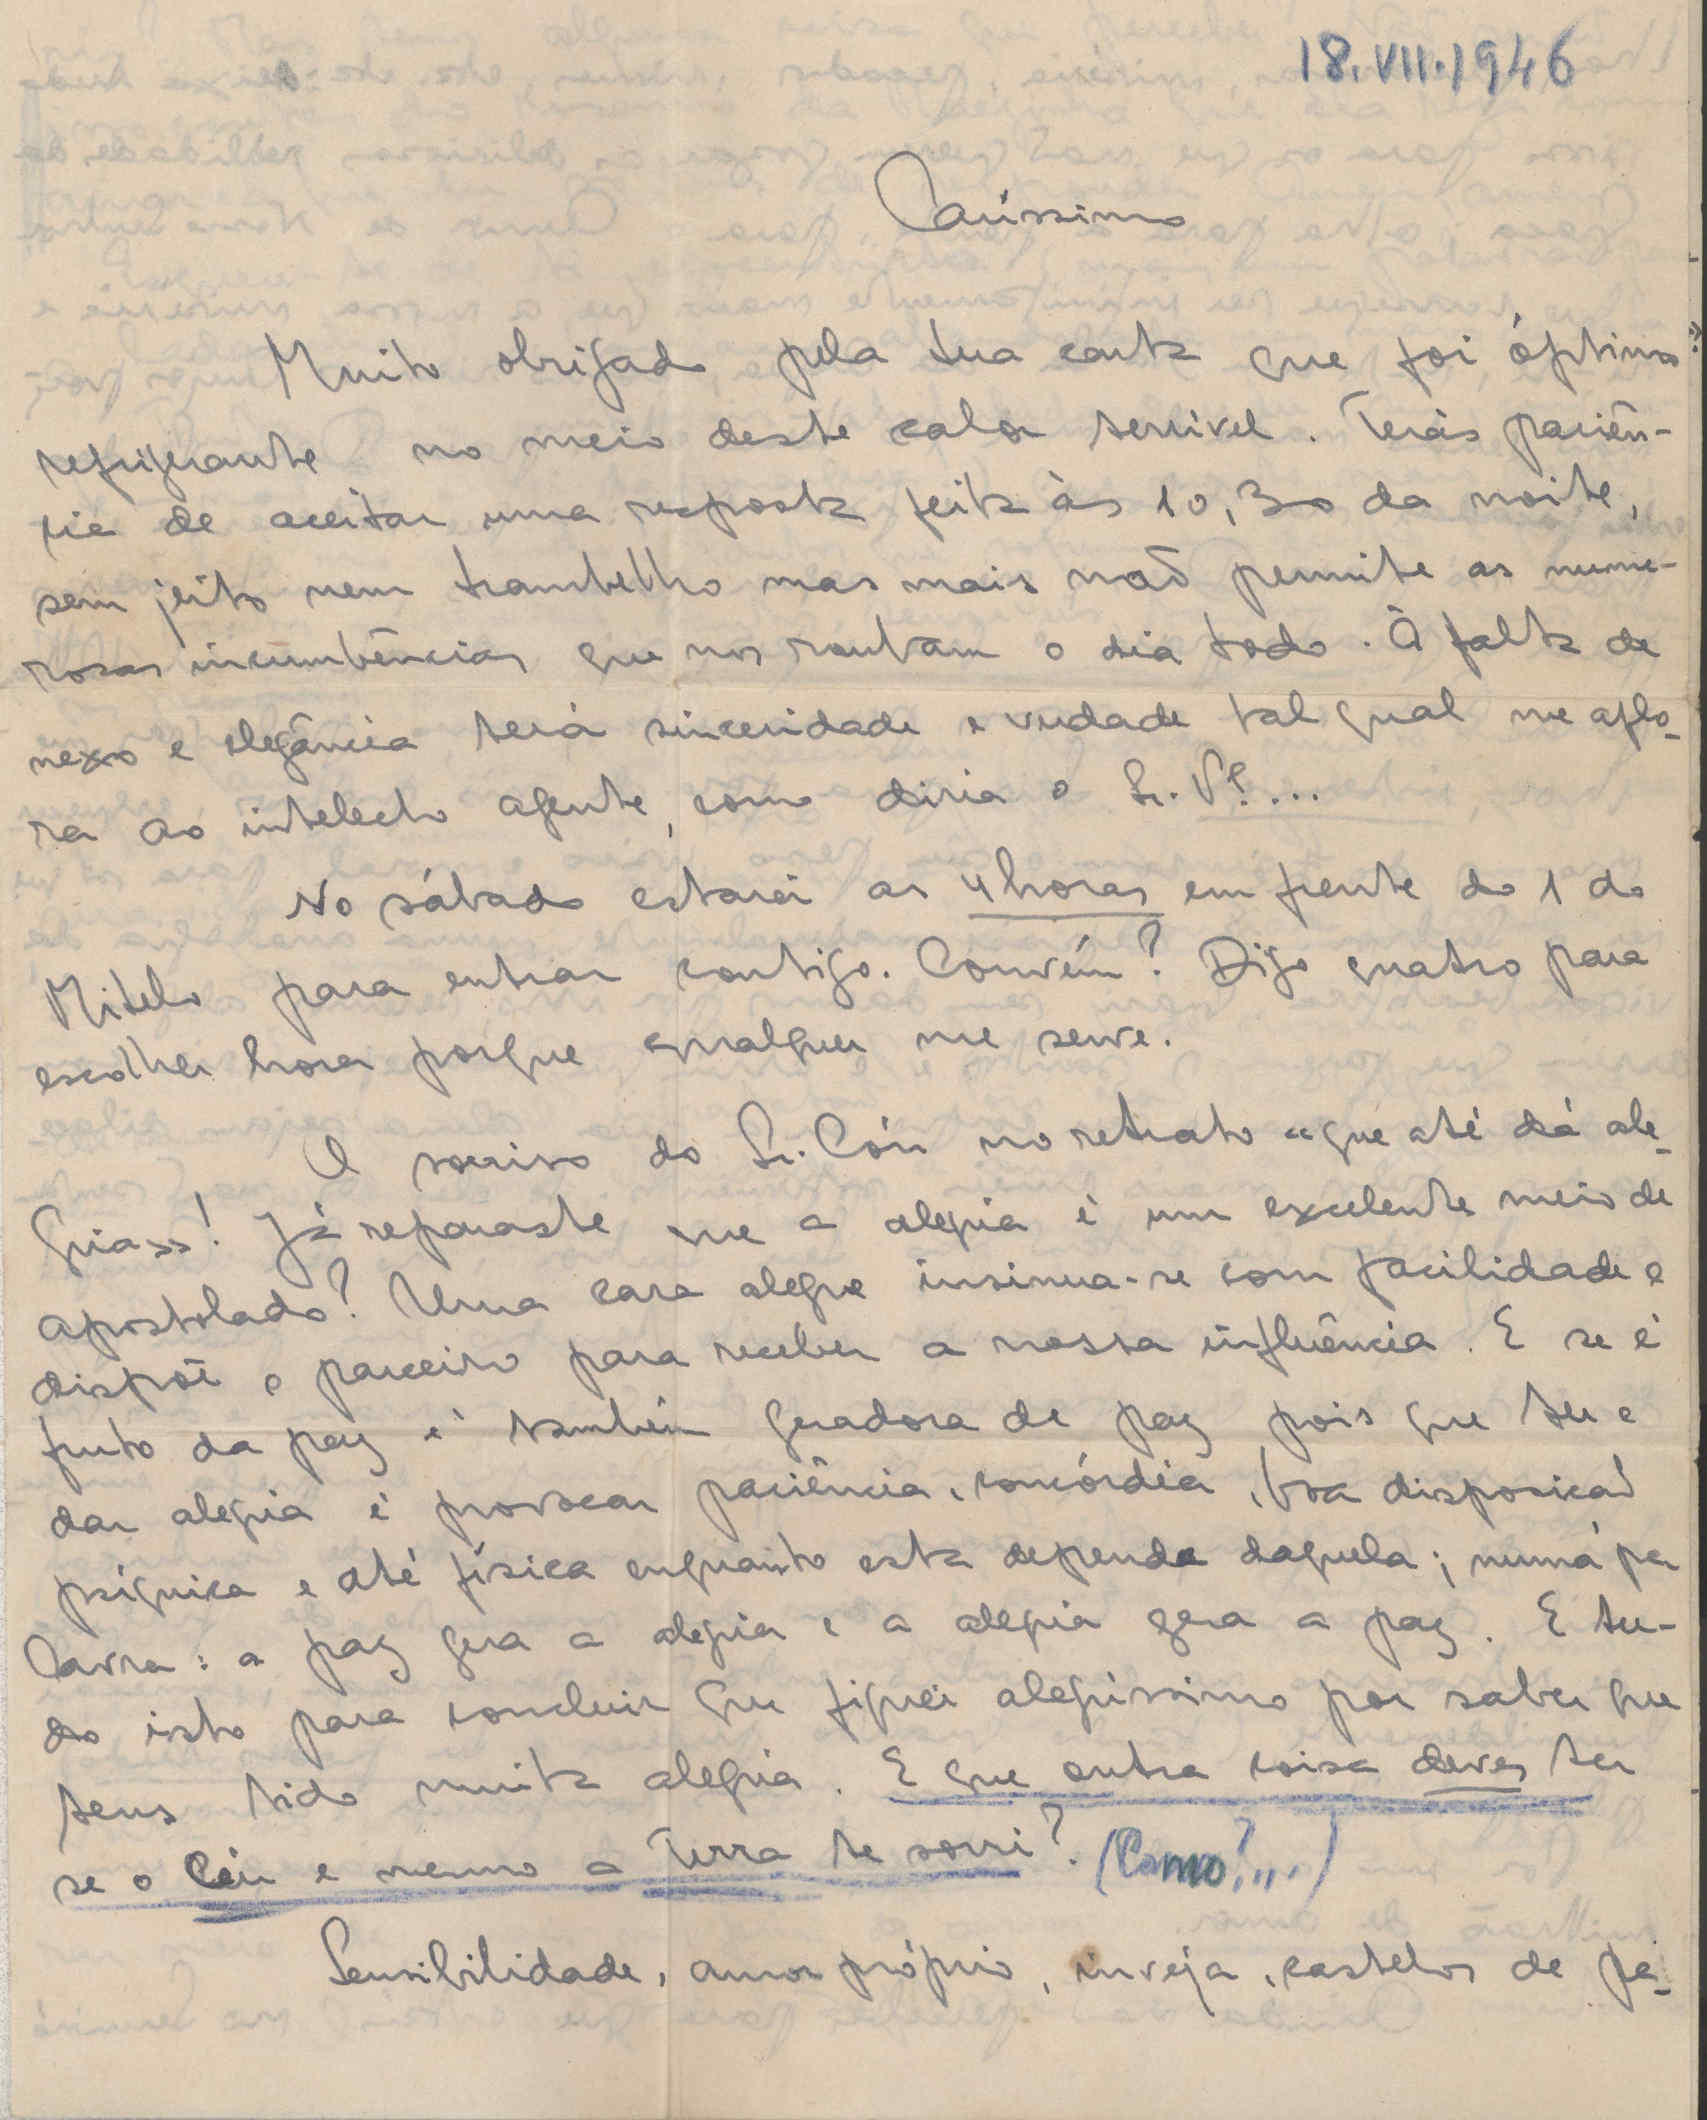 18.VII.1946
Caríssimo
Muito obrigado pela tua carta que foi óptimo
refrigerante no meio deste calor terrível. Terás paciên-
cia de aceitar uma resposta feita às 10,30 da noite,
sem jeito nem trambelho mas mais não permite as nume-
rosas incumbências que nos roubam o dia todo. À falta de
nexo e elegância terá sinceridade e verdade tal qual me aflo-
ra ao intelecto agente, como diria o Sr. Pe....
No sábado estarei as 4 horas em frente do 1 do
Mitelo para entrar contigo. Convém? Digo quatro para
escolher hora porque qualquer me serve.
O sorriso do Sr. Cón no retrato «que até dá ale-
gria»! Já reparaste que a alegria é um excelente meio de
apostolado? Uma cara alegre insinua-se com facilidade e
dispõe o parceiro para receber a nossa influência. E se é
fruto da paz é também geradora de paz pois que ter e
dar alegria é provocar paciência, concórdia, boa disposição
psíquica e até física enquanto esta depende daquela; numa pa
lavra: a paz gera a alegria e a alegria gera a paz. E tu-
do isto para concluir que fiquei alegríssimo por saber que
tens tido muita alegria. E que outra coisa deves ter
se o Céu e mesmo a Terra te sorri? (Como?...)
Sensibilidade, amor próprio, inveja, castelos de fa-